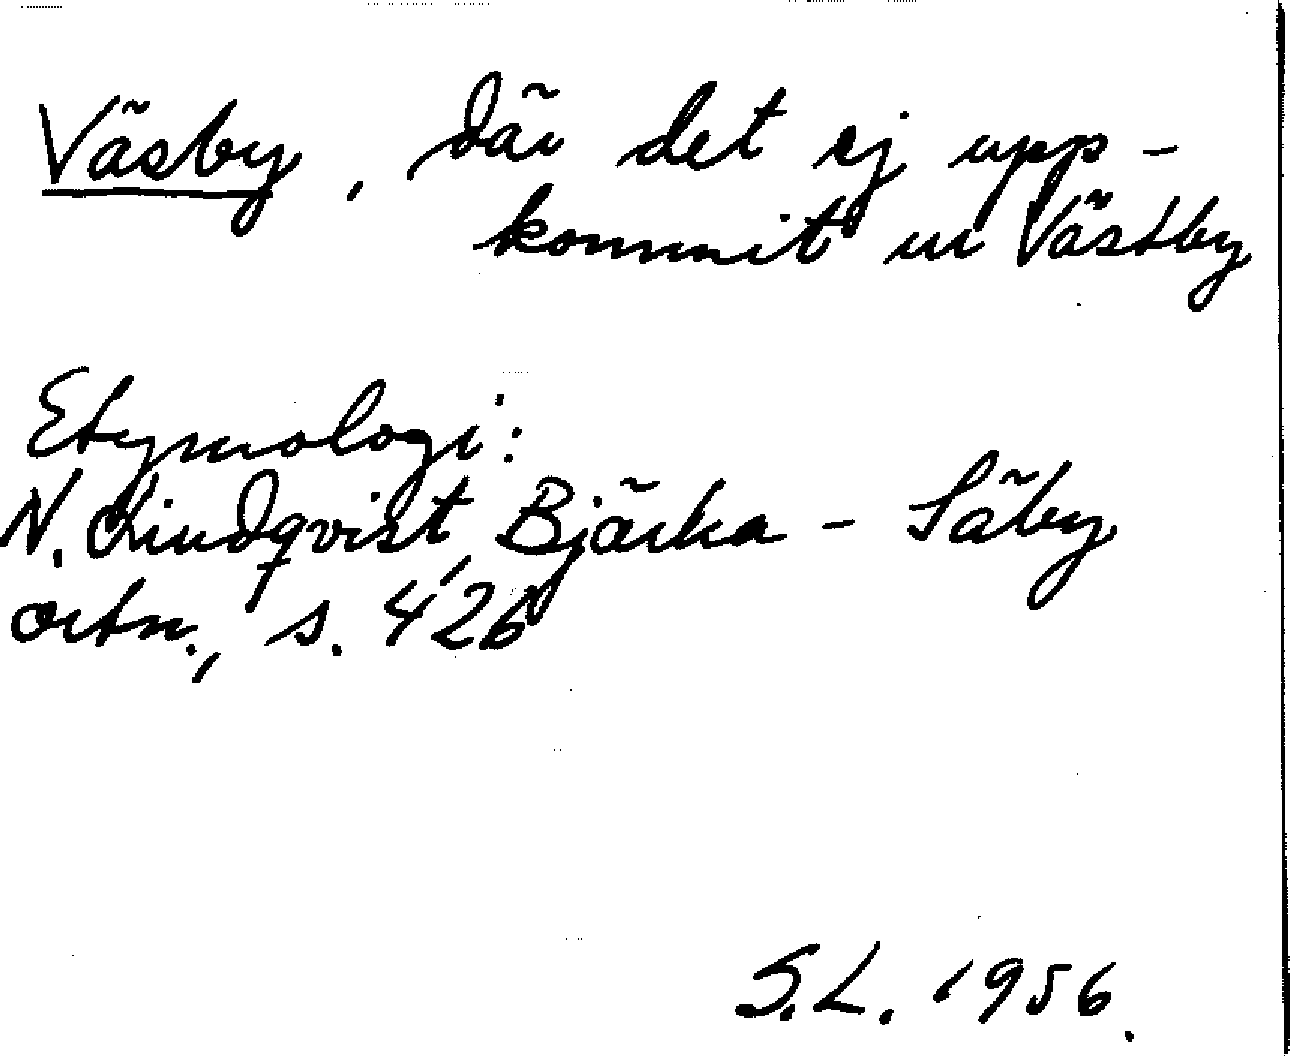 Väsby, där det ej upp-
kommit ur Västby
Etymologi:
N. Lindqvist, Bjärka-Säby
ortn., s. 426
S.L. 1956.